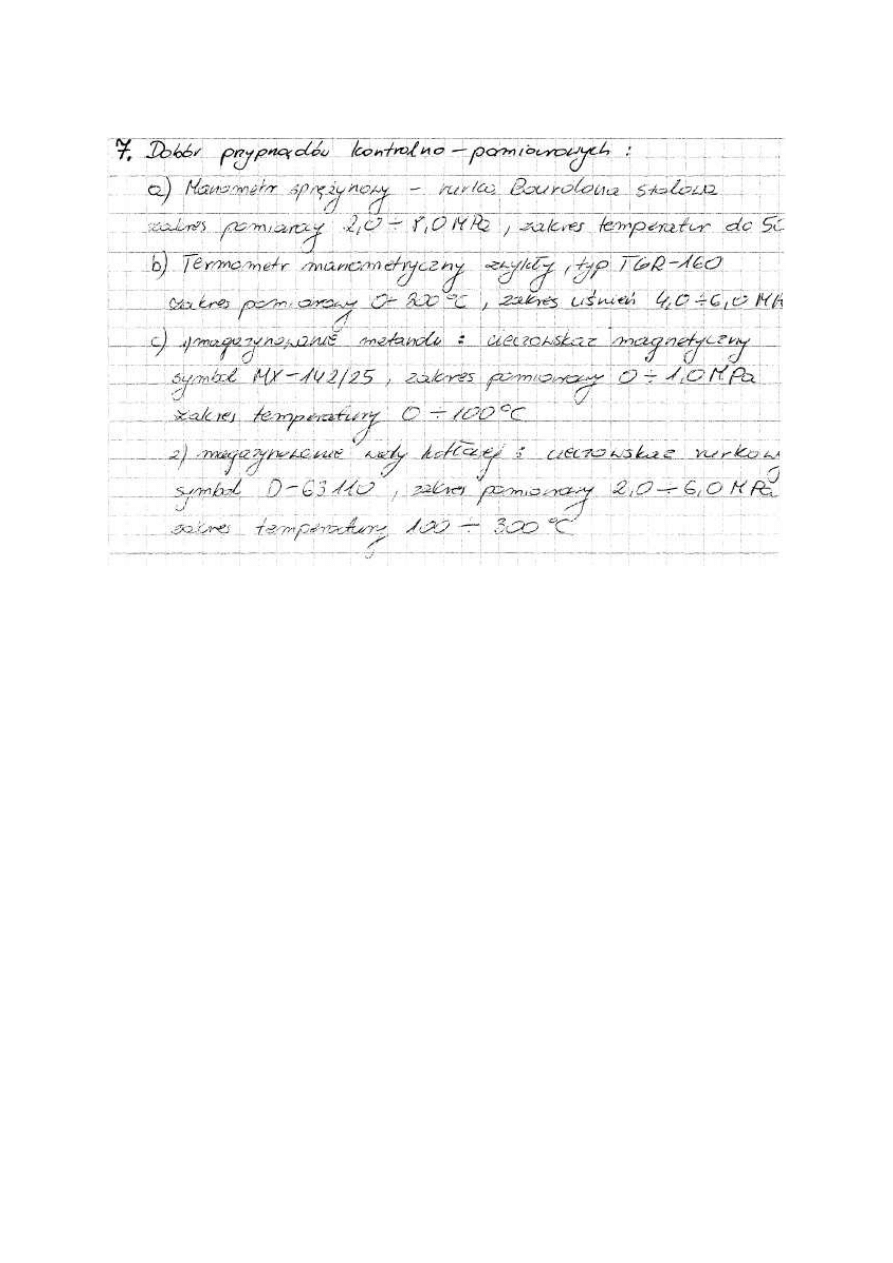 7. Dobór przyrządów kontrolno-pomiarowych :
a) Manometr sprężynowy - rurka Bourdona stalowa
zakres pomiarowy 2,0 ÷ 8,0 MPa , zakres temperatur do
b) Termometr manometryczny zwykły, typ TGR-160
zakres pomiarowy 0- 200 °C , zakres ciśnień 4,0÷6,0
c) 1) magazynowanie metanolu : cieczowskaz magnetyczny
symbol MX-142/25 , zakres pomiarowy 0 ÷ 1,0 MPa
zakres temperatury 0 ÷ 100°C
2) magazynowanie wody kotłowej : cieczowskaz rurkow
symbol D-63110 , zakres pomiarowy 2,0 ÷ 6,0 MPa
zakres temperatury 100 ÷ 300 °C